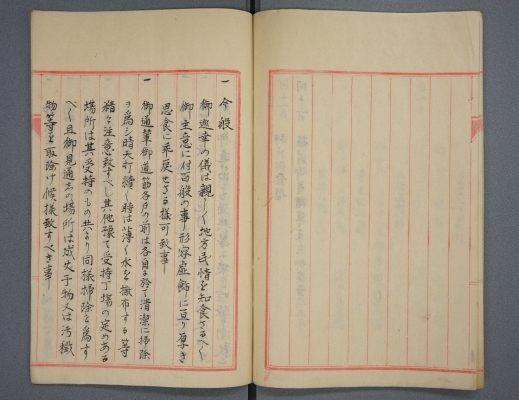 一 今般
御巡幸の儀は親しく地方民情を知食さるへく
御主意に付百般の事形容虚飾に亘り厚き
思食に乖戻せさる様可致事
一 御通輦御道筋各戸の前は各自に於て清潔に掃除
ヲ為シ晴天打續く時は薄く水を撒布する等
精々注意致すへし其他豫て受持丁場の定めある
場所は其受持のもの共より同様掃除を為す
へく且御見通しの場所は成丈干物又は汚穢
物等を取除け候様致すへき事